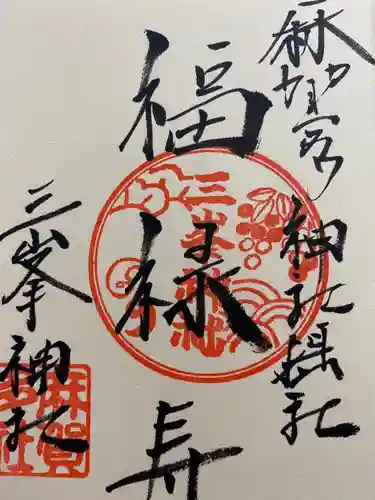 麻賀多神社摂社
福禄寿
三峯神社
三峯神社
麻賀